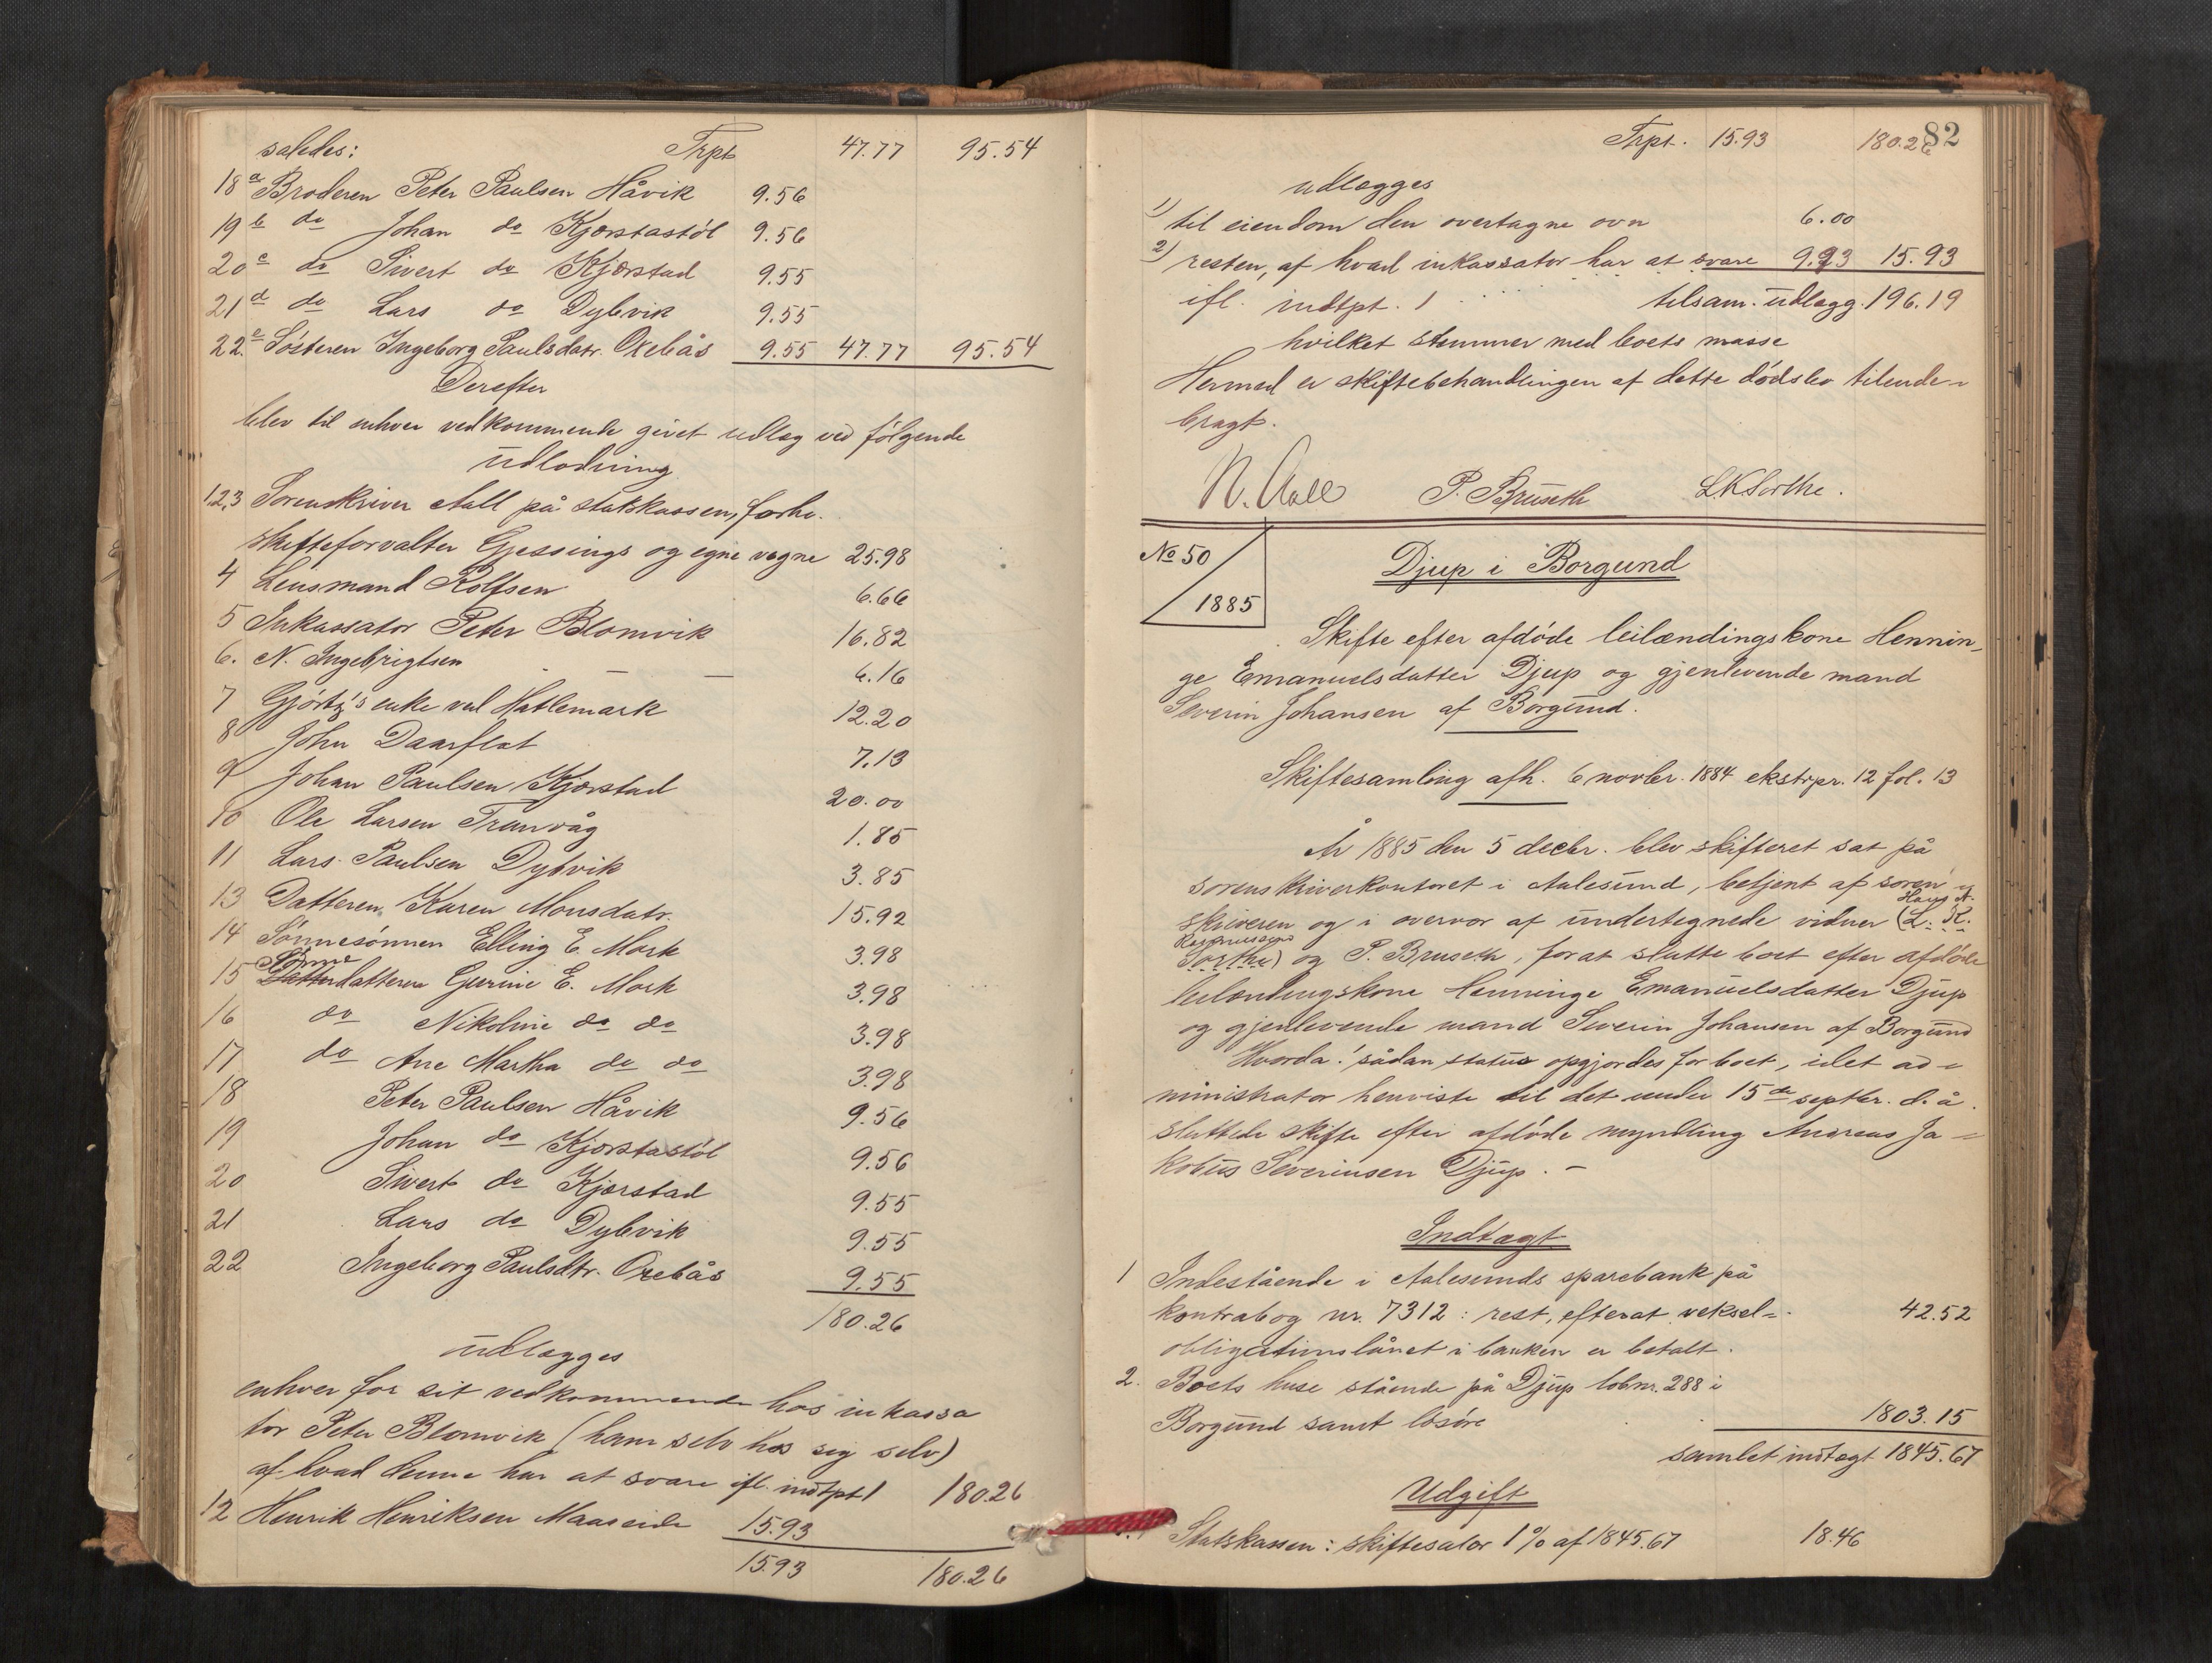 saledes: Trpt 47.77 95.54
18 a Broderen Peter Paulsen Håvik 9.56
19 b do Johan do Kjørstastöl 9.56
20 c do Sivert do Kjørstad 9.55
21 d do Lars do Dybvik 9.55
22. e Sösteren Ingeborg Paulsdatr. Oxebås 9.55 47.77 95.54
Derefter
blev til enhver vedkommende givet udlæg ved følgende
udlodning
1,2,3 Sorenskriver Aall på statskassen, forhv.
skifteforvalter Gjessings og egne vegne 25.98
4 Lensmand Rolfsen 6.66
5 Inkassator Peter Blomvik 16.82
6. N. Ingebrigtsen 6.16
7 Gjörtz's enke ved Hatlemark 12.20
8 John Daarflot 7.13
9 Johan Paulsen Kjørstad 20.00
10 Ole Larsen Tranvåg 1.85
11 Lars Paulsen Dybvik 3.85
13 Datteren Karen Monsdatr. 15.92
14 Sönnesönnen Elling E. Mork 3.98
15 Sönnedatteren Gurine E. Mork 3.98
16 do Nikoline do do 3.98
17 do Ane Martha do do 3.98
18 Peter Paulsen Håvik 9.56
19 Johan do Kjørstastöl 9.56
20 Sivert do Kjørstad 9.55
21 Lars do Dybvik 9.55
22 Ingeborg Paulsdtr. Oxebås 9.55
180.26
udlægges
enhver for sit vedkommende hos inkassa
tor Peter Blomvik (ham selv hos sig selv)
af hvad denne har at svare ifl. indtpt 1 180.26
12 Henrik Henriksen Maaseide 15.93
15.93 180.26
Trpt. 15.93 180.26
82
udlægges
1) til eiendom den overtagne ovn 6.00
2) resten, af hvad inkassator har at svare 9.93 15.93
ifl. indtpt. 1 tilsam. udlægg. 196.19
hvilket stemmer med boets masse
Hermed er skiftebehandlingen af dette dödsbo tilende-
bragt.
N. Aall P. Bruseth L.K Sorthe.
No 50
1885
Djup i Borgund
Skifte efter afdöde leilændingskone Hennin-
ge Emanuelsdatter Djup og gjenlevende mand
Severin Johansen af Borgund.
Skiftesamling afh. 6 novbr. 1884 ekstrpr. 12 fol. 13
År 1885 den 5 decbr. blev skifteret sat på
sorenskriverkontoret i Aalesund, betjent af soren-
skriveren og i overvær af undertegnede vidner (L. K.
Hans A.
Rasmussen
Sorthe) og P. Bruseth, for at slutte boet efter afdöde
leilændingskone Henninge Emanuelsdatter Djup
og gjenlevende mand Severin Johansen af Borgund
Hvorda: sådan status opgjordes for boet, idet ad-
ministrator henviste til det under 15de septbr. d. å.
sluttede skifte efter afdöde myndling Andreas Ja-
kobus Severinsen Djup. -
Indtægt
1 Indestående i Aalesunds sparebank på
kontrabog nr. 7312: rest, efterat veksel- 42.52
obligationslånet i banken er betalt.
2. Boets huse stående på Djup löbnr. 288 i
Borgund samt lösöre 1803.15
samlet indtægt 1845.67
Udgift
Statskassen: skifteafgift 1% af 1845.67 18.46